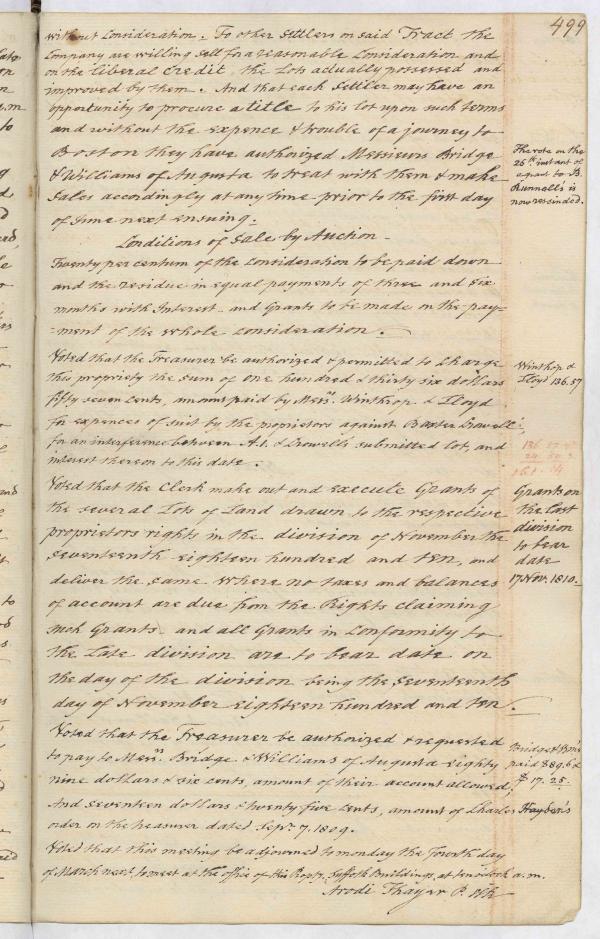 499
without Consideration. To other Settlers on said Tract the
Company are willing Sell for a reasonable Consideration and
on the liberal Credit, the Lots actually possessed and
improved by them. And that each Settler may have an
opportunity to procure a title to his lot upon such terms
and without the expence & trouble of a journey to
Boston they have authorized Messieurs Bridge
& Williams of Augusta to treat with them & make
Sales accordingly at any time prior to the first day
of June next ensuing.
The vote on the
25th instant of
a grant to B.
Runnells is
now rescinded.
Conditions of Sale by Auction
Twenty per centum of the Consideration to be paid down
and the residue in equal payments of three and six
months with Interest and Grants to be made on the pay=
=ment of the whole consideration.
Voted that the Treasurer be authorized & permitted to Charge
this propriety the sum of one hundred & thirty six dollars
fifty seven cents, amount paid by Messrs. Winthop & Lloyd
for expences of suit by the proprietors against Baxter Crowell
for an interference between A.1. & Crowell's submitted lot, and
interest thereon to this date.
Winthop &
Lloyd 136.57
Voted that the Clerk make out and execute Grants of
the several Lots of Land drawn to the respective
proprietors rights in the division of November the
Seventeenth eighteen hundred and ten, and
deliver the same where no taxes and balances
of account are due from the Rights claiming
such Grants and all Grants in Conformity to
the Late division are to bear date on
the day of the division being the seventeenth
day of November eighteen hundred and ten.
Grants on
the last
division
to bear
date
17 Nov. 1810.
Voted that the Treasurer be authorized & requested
to pay to Messrs. Bridge & Williams of Augusta eighty
nine dollars & six cents, amount of their account allowed,
And seventeen dollars & twenty five cents, amount of Charles Hayden's
order on the treasurer dated Sepr. 7. 1809.
paid $89.6 &
$ 17.25.
Voted that this meeting be adjourned to monday the Fourth day
of March next to meet at the office of this Propty. Suffolk Buildings, at ten o'clock a.m.
Arodi Thayer P. Clk